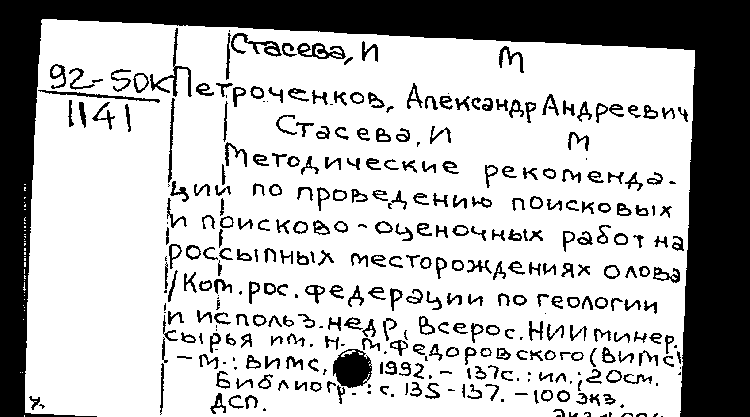 Стасева, И М
92-50К
1141
Петроченков, Александр Андреевич
Стасева, И М
Методические рекоменда-
ции по проведению поисковых
и поисково-оценочных работ на
россыпных месторождениях олова
/Ком. рос. федерации по геологии
и использ. недр, Всерос. НИИ минер.
сырья им. Н. М. Федоровского (ВИМС)
- М.: ВИМС, 1992. - 137с.: ил.; 20см.
Библиогр.: с. 135-137. - 100 экз.
ДСП.